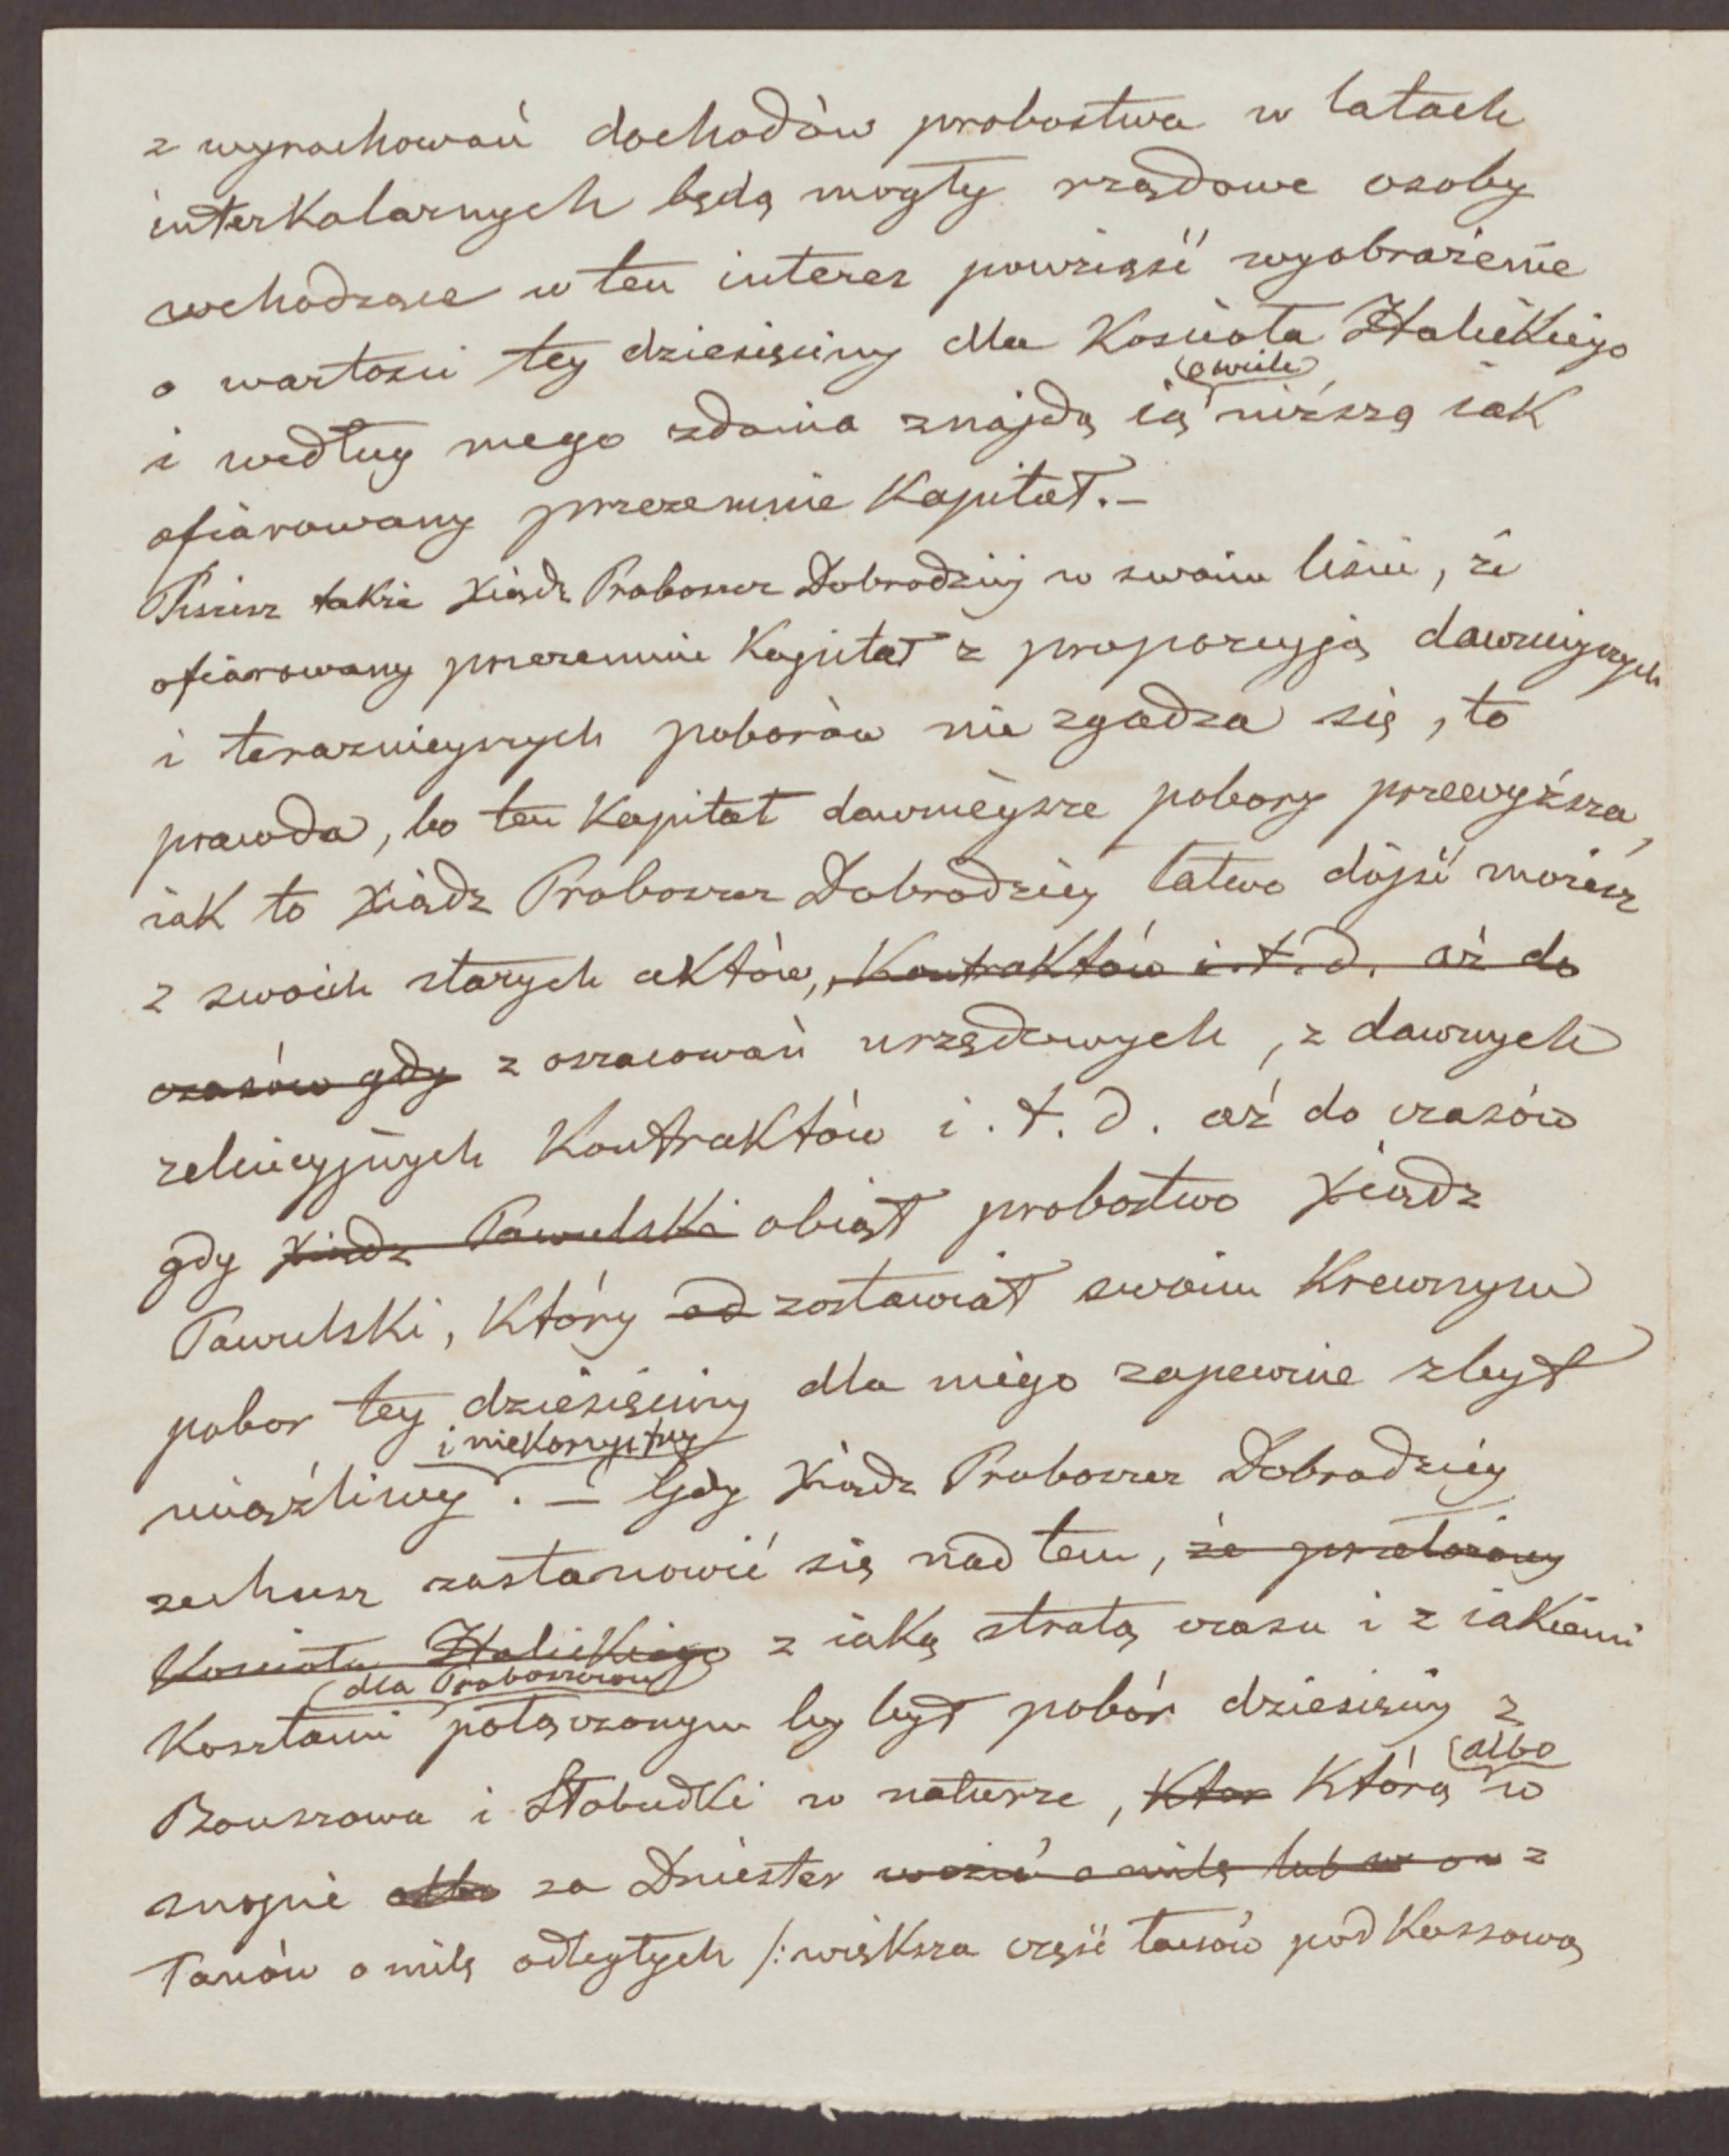 z wyrachowań dochodów probostwa w latach
interkalarnych będą mogły rządowe osoby
wchodzące w ten interes powziąść wyobrażenie
o wartości tey dziesięciny dla Kościoła Halickiego
o wiele
i według mego zdania znajdą ią niższą iak
ofiarowany przezemnie Kapitał. –
Piszesz także Xiądz Proboszcz Dobrodziej w swoim liście, że
ofiarowany przezemnie Kapitał z proporcyją dawniejszych
i terazniejszych poborów nie zgadza się, to
prawda, bo ten Kapitał dawnieysze pobory przewyższa,
iak to Xiądz Proboszcz Dobrodziey łatwo dójść możesz
z swoich starych aktów, Kontraktów i.t.d. aż do
czasów gdy z oszacowań urzędowych, z dawnych
relicyjnych Kontraktów i.t.d. aż do czasów
gdy Xiądz Pawulski obiął probostwo Xiądz
Pawulski, Który od zostawiał swoim Krewnym
pobor tey dziesięciny dla niego zapewne zbyt
i niekorzystny
uciążliwy. – Gdy Xiądz Proboszcz Dobrodziéy
zechcesz zastanowić się nad tem, że przełożony
Kościoła Halickiego z iaką stratą czasu i z iakiemi
dla Proboszczow
Kosztami połączonym by był pobór dziesięciny z
albo
Bouszowa i Słobudki w naturze, Ktor Którą w
snopie albo za Dniester wozić o milę lub w z
Łanów o milę odległych /: większa część łanów pod Kossową